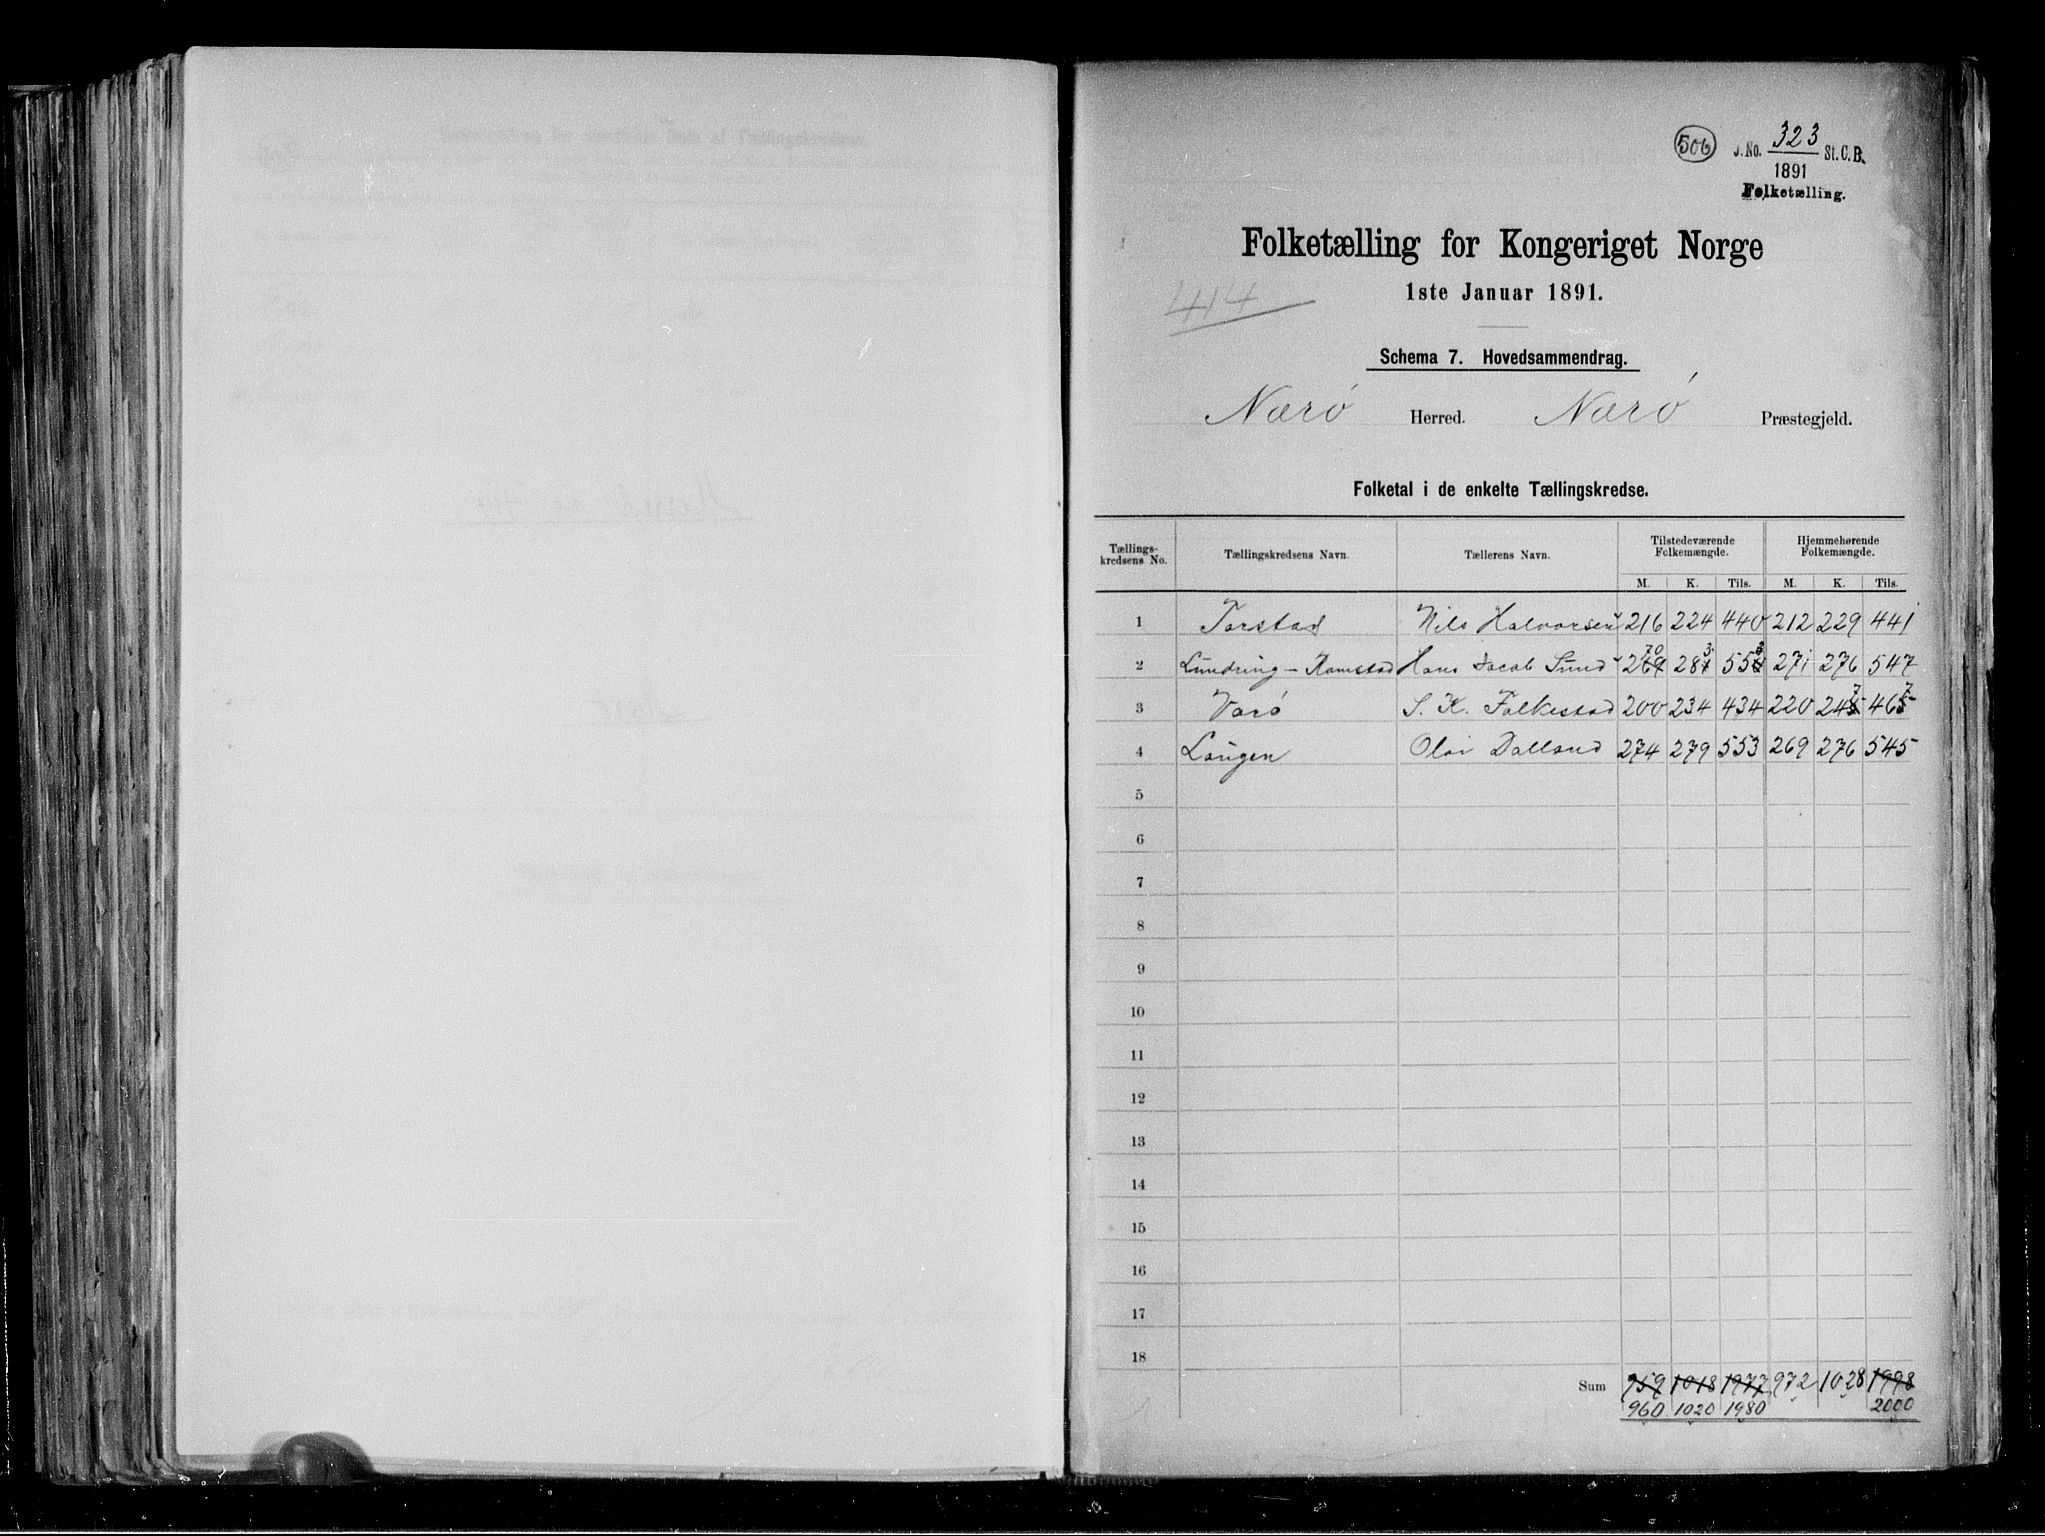 506
J. No. 323 St. C. B.
1891
Folketælling.
Folketælling for Kongeriget Norge
1ste Januar 1891.
414
Schema 7. Hovedsammendrag.
Nærö Herred. Nærö Præstegjeld.
Folketal i de enkelte Tællingskredse.
Tællings-kredsens No. Tællingskredsens Navn. Tællerens Navn. Tilstedeværende Folkemængde. Hjemmehørende Folkemængde.
M. K. Tils. M. K. Tils.
1 Torstad Nils Halvorsen 216 224 440 212 229 441
2 Lundring - Ramstad Hans Jacob Sund 270 283 553 271 276 547
3 Varö S. K. Falkestad 200 234 434 220 247 467
4 Laugen Olai Dalland 274 279 553 269 276 545
5
6
7
8
9
10
11
12
13
14
15
16
17
18
Sum 959 1018 1977 972 1028 1998
960 1020 1980 2000